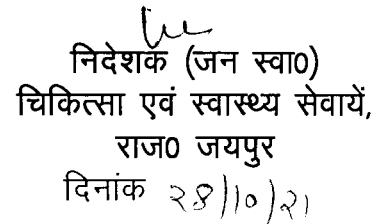 निदेशक (जन स्वा0)
चिकित्सा एवं स्वास्थ्य सेवायें,
राज0 जयपुर
दिनांक २8/10/21